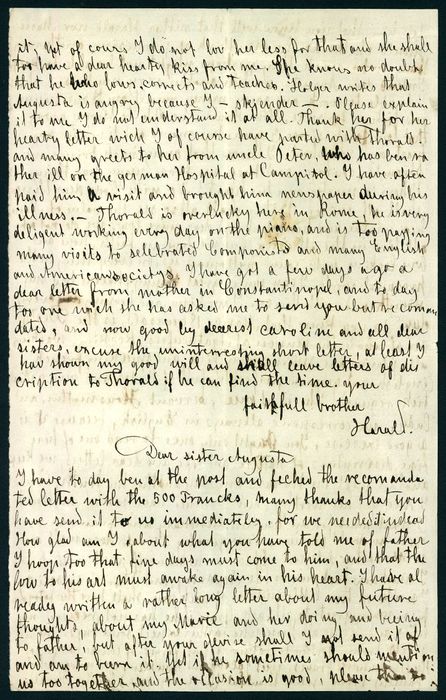 it, yet of cours I do not lov her less for that and she shall
too have a dear hearty kiss from me. She knows no doubt
that he who lows, corrects and teaches. Holger writes that
Augusta is angry because I – skjender –. Please explain
it to me I do not understand it at all. Thank her for her
hearty letter wich I of course have parted with Thorald.
and many greets to her from uncle Peter, who has been ra
ther ill on the german Hospital at Campitol. I have often
paid him a visit and brought him newspaper during his
illness. – Thorald is overlucky here in Rome, he is very
deligent working every day on the piano, and is too paying
many visits to celebrated Componists and many English
and American societys. I have got a few days ago a
dear letter from mother in Constantinopel, and to day
too one wich she has asked me to send you but recoman
dated, and now good by dearest caroline and all dear
sisters, excuse the uninterresting short letter, at least I
hav shown my good will and shall leave letters of dis
cription to Thorald if he can find the time. your
faithfull brother
Harald.
Dear sister Augusta
I have to day ben at the post and feched the recomanda
ted letter with the 500 Francks, many thanks that you
have send it to us immediatley, for we needed it indead
How glad am I about what you have told me of father
I hoop too that fine days must come to him, and that the
lov to his art must awake again in his heart. I have al
ready written a rather long letter about my future
thoughts, about my Marie and her doing and being
to father, but after your devise shall I not send it of
and am to burn it. Yet if he sometimes should mention
us too together, and the occasion is good, please